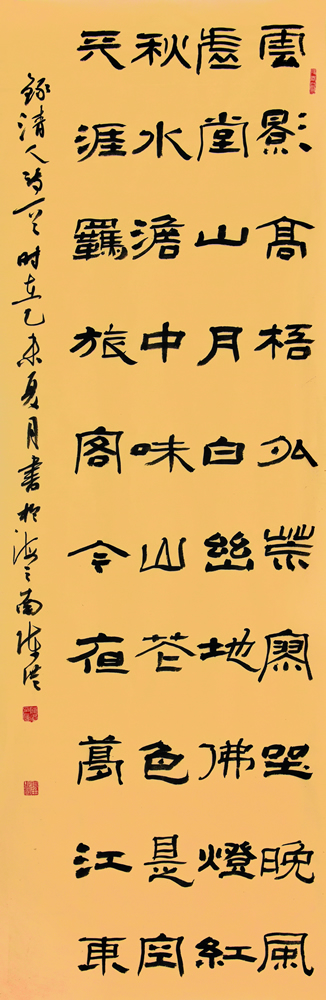 雲影高梧外荒寥坐晚風
虛堂山月白幽地佛燈紅
秋水澹中味山芒色是空
天涯羈旅客今夜夢江東
錄清人詩一首时在乙未夏月書於海之南